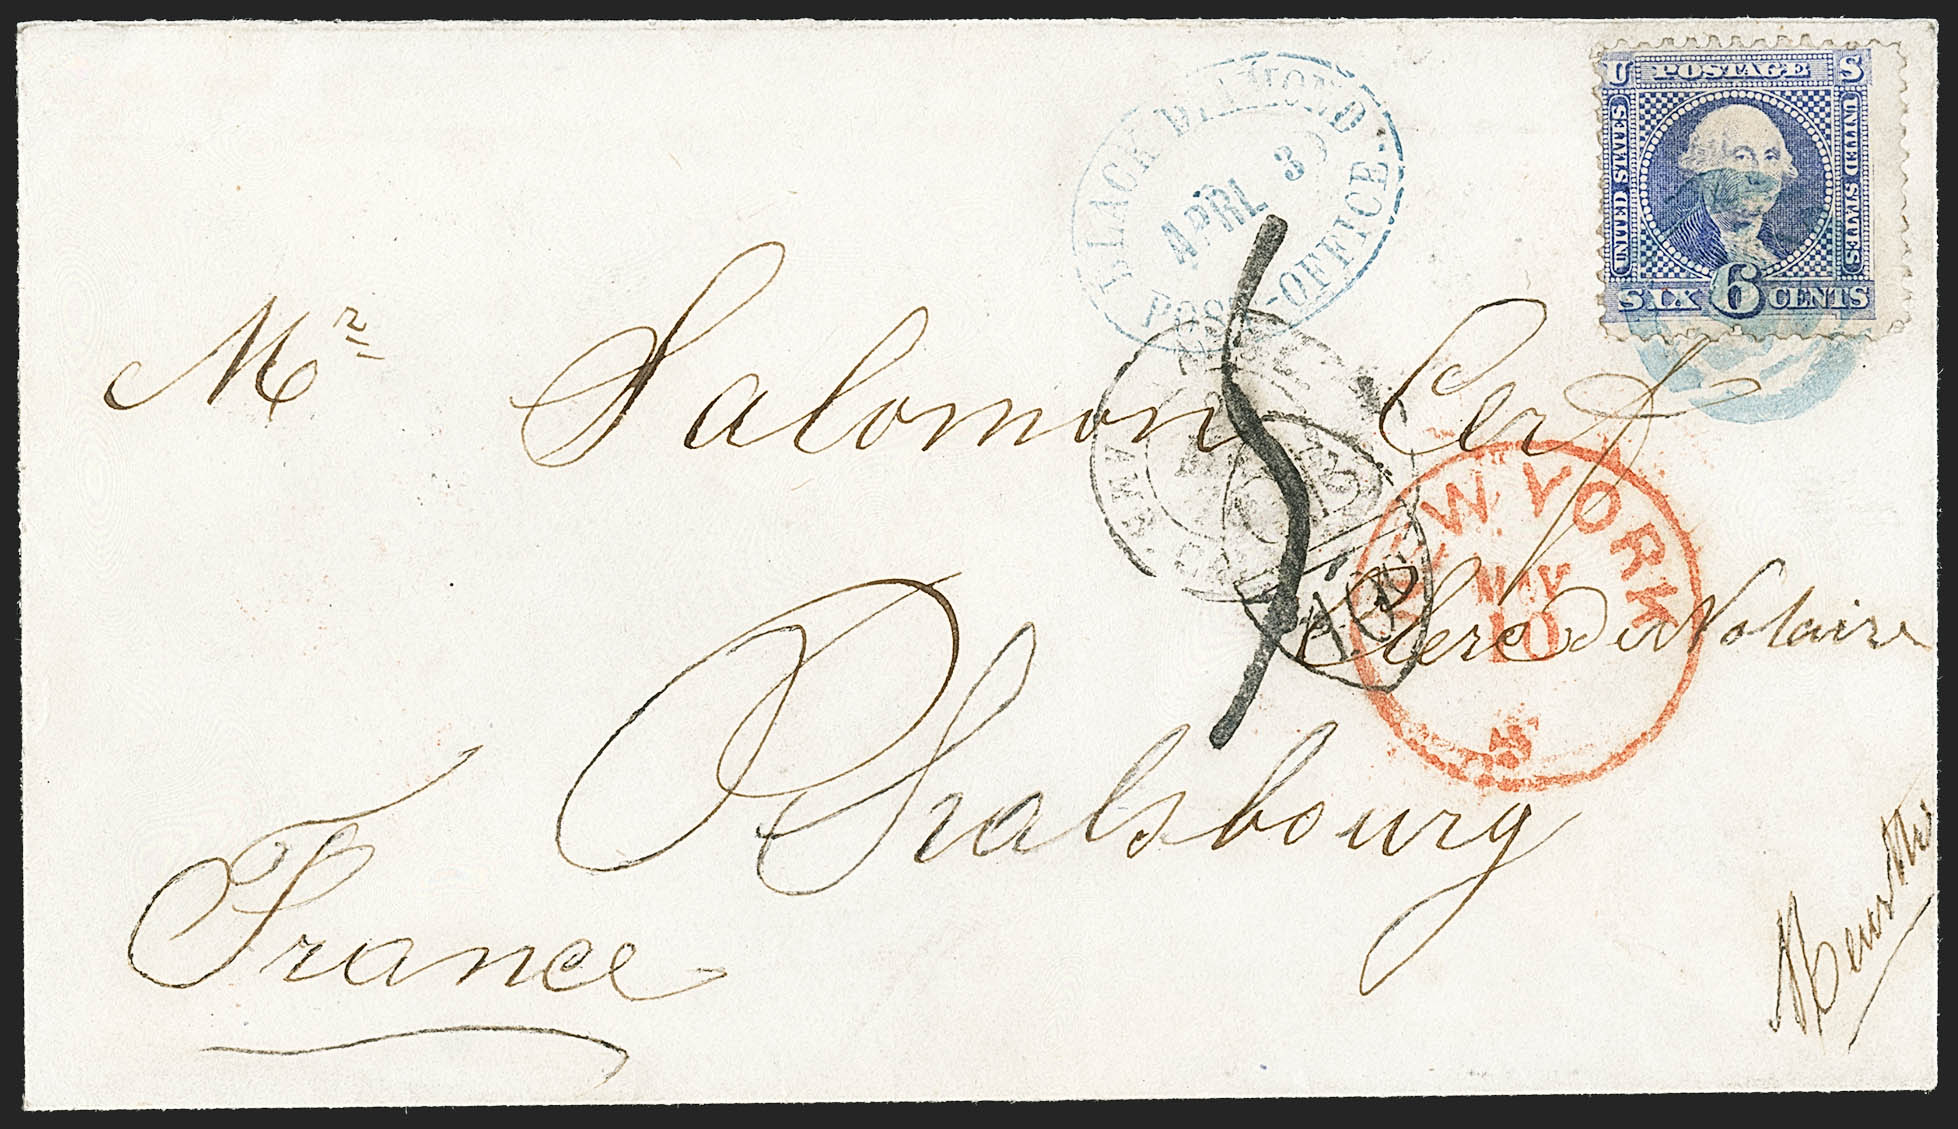 BLACK DIAMOND
APRL 30
POST-OFFICE
U POSTAGE S
UNITED STATES
UNITED STATES
SIX 6 CENTS
Mr Salomon Cerf
NEW YORK
MAY
10
Clerc de Notaire
Phalsbourg
France